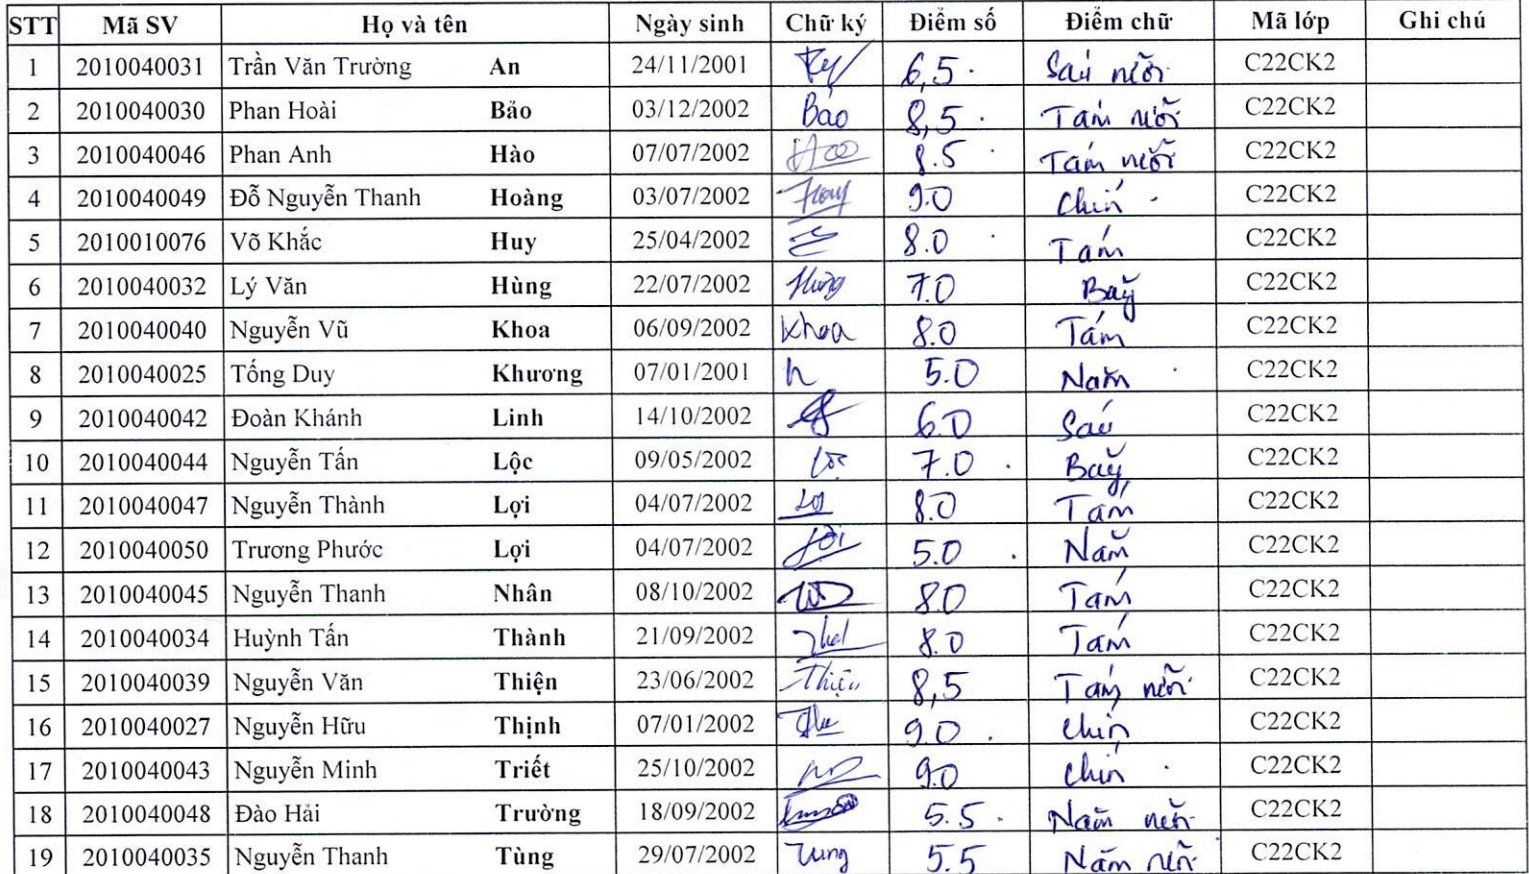 STT Mã SV Họ và tên Ngày sinh Chữ ký Điểm số Điểm chữ Mã lớp Ghi chú
1 2010040031 Trần Văn Trường An 24/11/2001 6,5 Sáu rưỡi C22CK2
2 2010040030 Phan Hoài Bảo 03/12/2002 Bảo 8,5 Tám rưỡi C22CK2
3 2010040046 Phan Anh Hào 07/07/2002 8.5 Tám rưỡi C22CK2
4 2010040049 Đỗ Nguyễn Thanh Hoàng 03/07/2002 9.0 Chín C22CK2
5 2010010076 Võ Khắc Huy 25/04/2002 8.0 Tám C22CK2
6 2010040032 Lý Văn Hùng 22/07/2002 Hùng 7.0 Bảy C22CK2
7 2010040040 Nguyễn Vũ Khoa 06/09/2002 Khoa 8.0 Tám C22CK2
8 2010040025 Tống Duy Khương 07/01/2001 5.0 Năm C22CK2
9 2010040042 Đoàn Khánh Linh 14/10/2002 6.0 Sáu C22CK2
10 2010040044 Nguyễn Tấn Lộc 09/05/2002 Lộc 7.0 Bảy C22CK2
11 2010040047 Nguyễn Thành Lợi 04/07/2002 8.0 Tám C22CK2
12 2010040050 Trương Phước Lợi 04/07/2002 5.0 Năm C22CK2
13 2010040045 Nguyễn Thanh Nhân 08/10/2002 8.0 Tám C22CK2
14 2010040034 Huỳnh Tấn Thành 21/09/2002 8.0 Tám C22CK2
15 2010040039 Nguyễn Văn Thiện 23/06/2002 Thiện 8,5 Tám rưỡi C22CK2
16 2010040027 Nguyễn Hữu Thịnh 07/01/2002 9.0 Chín C22CK2
17 2010040043 Nguyễn Minh Triết 25/10/2002 9.0 Chín C22CK2
18 2010040048 Đào Hải Trường 18/09/2002 5.5 Năm rưỡi C22CK2
19 2010040035 Nguyễn Thanh Tùng 29/07/2002 Tung 5.5 Năm rưỡi C22CK2